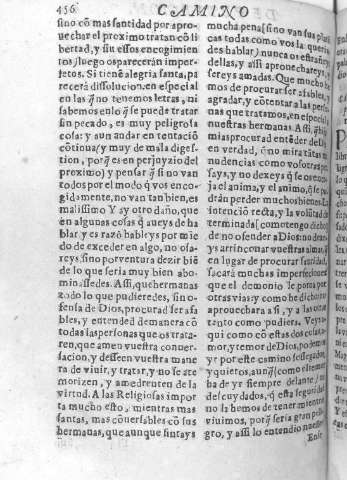 456 CAMINO
sino cō mas santidad por apro
uechar el proximo tratan con li
bertad, y sin essos encogimien
tos, luego os pareceran imper-
fetos. Si tienē alegria santa, pa
recerà dissolucion, en especial
en las q̃ no tenemos letras, ni
sabemos en lo q̃ se puede tratar
sin pecado, es muy peligrosa
cosa: y aun andar en tentaciō
cōtinua, y muy de mala diges-
tion, porq̃ es en perjuyzio del
proximo) y pensar q̃ si no van
todos por el modo q̃ vos enco-
gidamente, no van tan bien, es
malissimo Y ay otro daño, que
en algunas cosas q̃ aueys de ha
blar, y es razō hableys por mie
do de exceder en algo, no osa-
reys, sino por ventura dezir biē
de lo que seria muy bien abo-
minassedes. Assi, que hermanas
todo lo que pudieredes, sin o-
fensa de Dios, procurad ser afa
bles, y entended de manera cō
todas las personas que os trata-
ren, que amen vuestra conuer-
sacion, y desseen vuestra mane
ra de viuir, y tratar, y no se ate
morizen, y amedrenten de la
virtud. A las Religiosas impor
ta mucho esto, mientras mas
santas, mas cōuersables cō sus
hermanas, que aunque sintays
mucha pena (si no van sus plati
cas todas como vos las querria
des hablar) nunca os estrañeys
dellas, y assi aprouechareys, y
sereys amadas. Que mucho he
mos de procurar ser afables, y
agradar, y cōtentar a las perso
nas que tratamos, en especial a
nuestras hermanas. Assi, q̃ hijas
mias procurad entēder de Dios
en verdad, q̃ no mira tātas me
nudencias como vosotras pen
says, y no dexeys q̃ se os enco
ja el anima, y el animo, q̃ se po
dràn perder muchos bienes. La
intenciō recta, y la volūtad de
terminada (como tengo dicho)
de no ofender a Dios: no dexe
ys arrinconar vuestra alma, q̃
en lugar de procurar santidad,
sacarà muchas imperfeciones
que el demonio le porna por
otras vias: y como he dicho no
aprouecharà a si, y a las otras
tanto como pudiera. Veys a-
qui como cō estas dos cosas, a-
mor, y temor de Dio, podemos
yr por este camino sossegados,
y quietos, aunq̃ (como el temor
ha de yr siempre delante) no
descuydados, q̃ esta seguridad
no la hemos de tener mientras
viuimos, porq̃ seria gran peli-
gro, y assi lo entendio nuestro